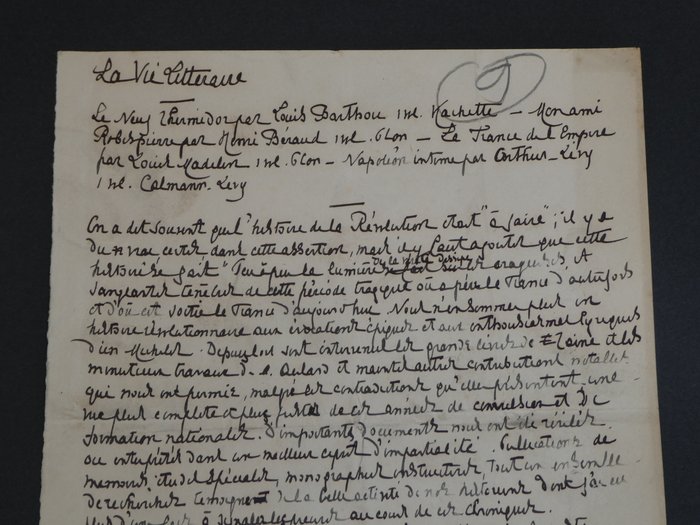 La Vie littéraire
Le Neuf Thermidor par Louis Barthou 1 vol. Hachette – Mon ami
Robespierre par Henri Béraud 1 vol. Plon – La France de l'Empire
par Louis Madelin 1 vol. Plon – Napoléon intime par Arthur-Lévy
1 vol. Calmann Levy
On a dit souvent que l'histoire de la Révolution était "à faire"; il y a
du vrai certes dans cette assertion, mais il y faut ajouter que cette
histoire se fait "peu à peu la lumière sur les et
sanglantes ténèbres de cette période tragique où a péri la France d'autrefois
et d'où est sortie la France d'aujourd'hui. Nous n'en sommes plus
histoire révolutionnaire aux évocations épiques et aux enthousiasmes lyriques
d'un Michelet. Depuis lors sont intervenus les grands livres de Taine et les
minutieux travaux de M. Aulard et maintes autres contributions notables
qui nous ont permis, malgré les contradictions qu'elles présentent, une
vue plus complète et plus juste de ces années de convulsion et de
formation nationales. D'importants documents nous ont été révélés
ou interprétés dans un meilleur esprit d'impartialité. Publications de
mémoires, études spéciales, monographies instructives, tout un ensemble
de recherches témoignent de la belle activité de nos historiens dont j'ai eu
plus d'une fois à signaler les preuves au cours de ces chroniques.